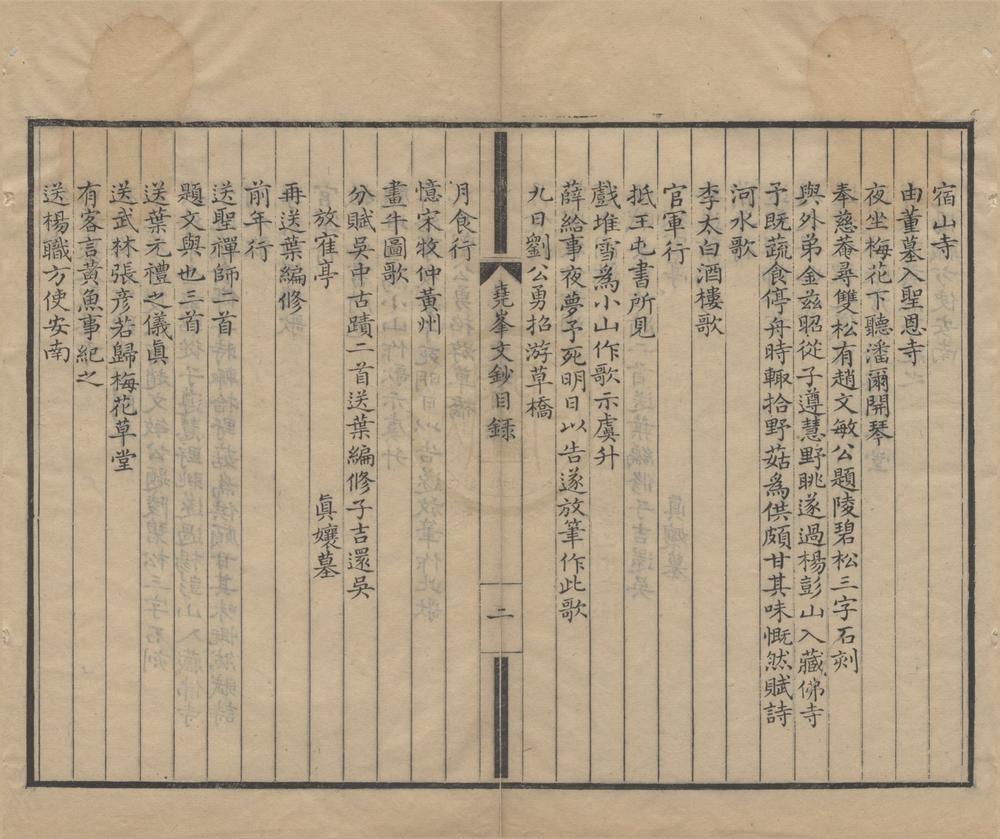 宿山寺
由董墓入聖恩寺
夜坐梅花下聽潘爾開琴
奉慈菴尋雙松有趙文敏公題陵碧松三字石刻
與外弟金茲昭從子遵慧野眺遂過楊彭山入藏佛寺
予既蔬食停舟時輙拾野菇為供頗甘其味慨然賦詩
河水歌
李太白酒樓歌
官軍行
抵王屯書所見
戲堆雪為小山作歌示虞升
薛給事夜夢予死明日以告遂放筆作此歌
九日劉公勇招游草橋
堯峯文鈔目録
二
月食行
憶宋牧仲黃州
畫牛圖歌
分賦吳中古蹟二首送葉編修子吉還吳
放隺亭 眞孃墓
再送葉編修
前年行
送聖禪師二首
題文與也三首
送葉元禮之儀眞
送武林張彥若歸梅花草堂
有客言黃魚事紀之
送楊職方使安南